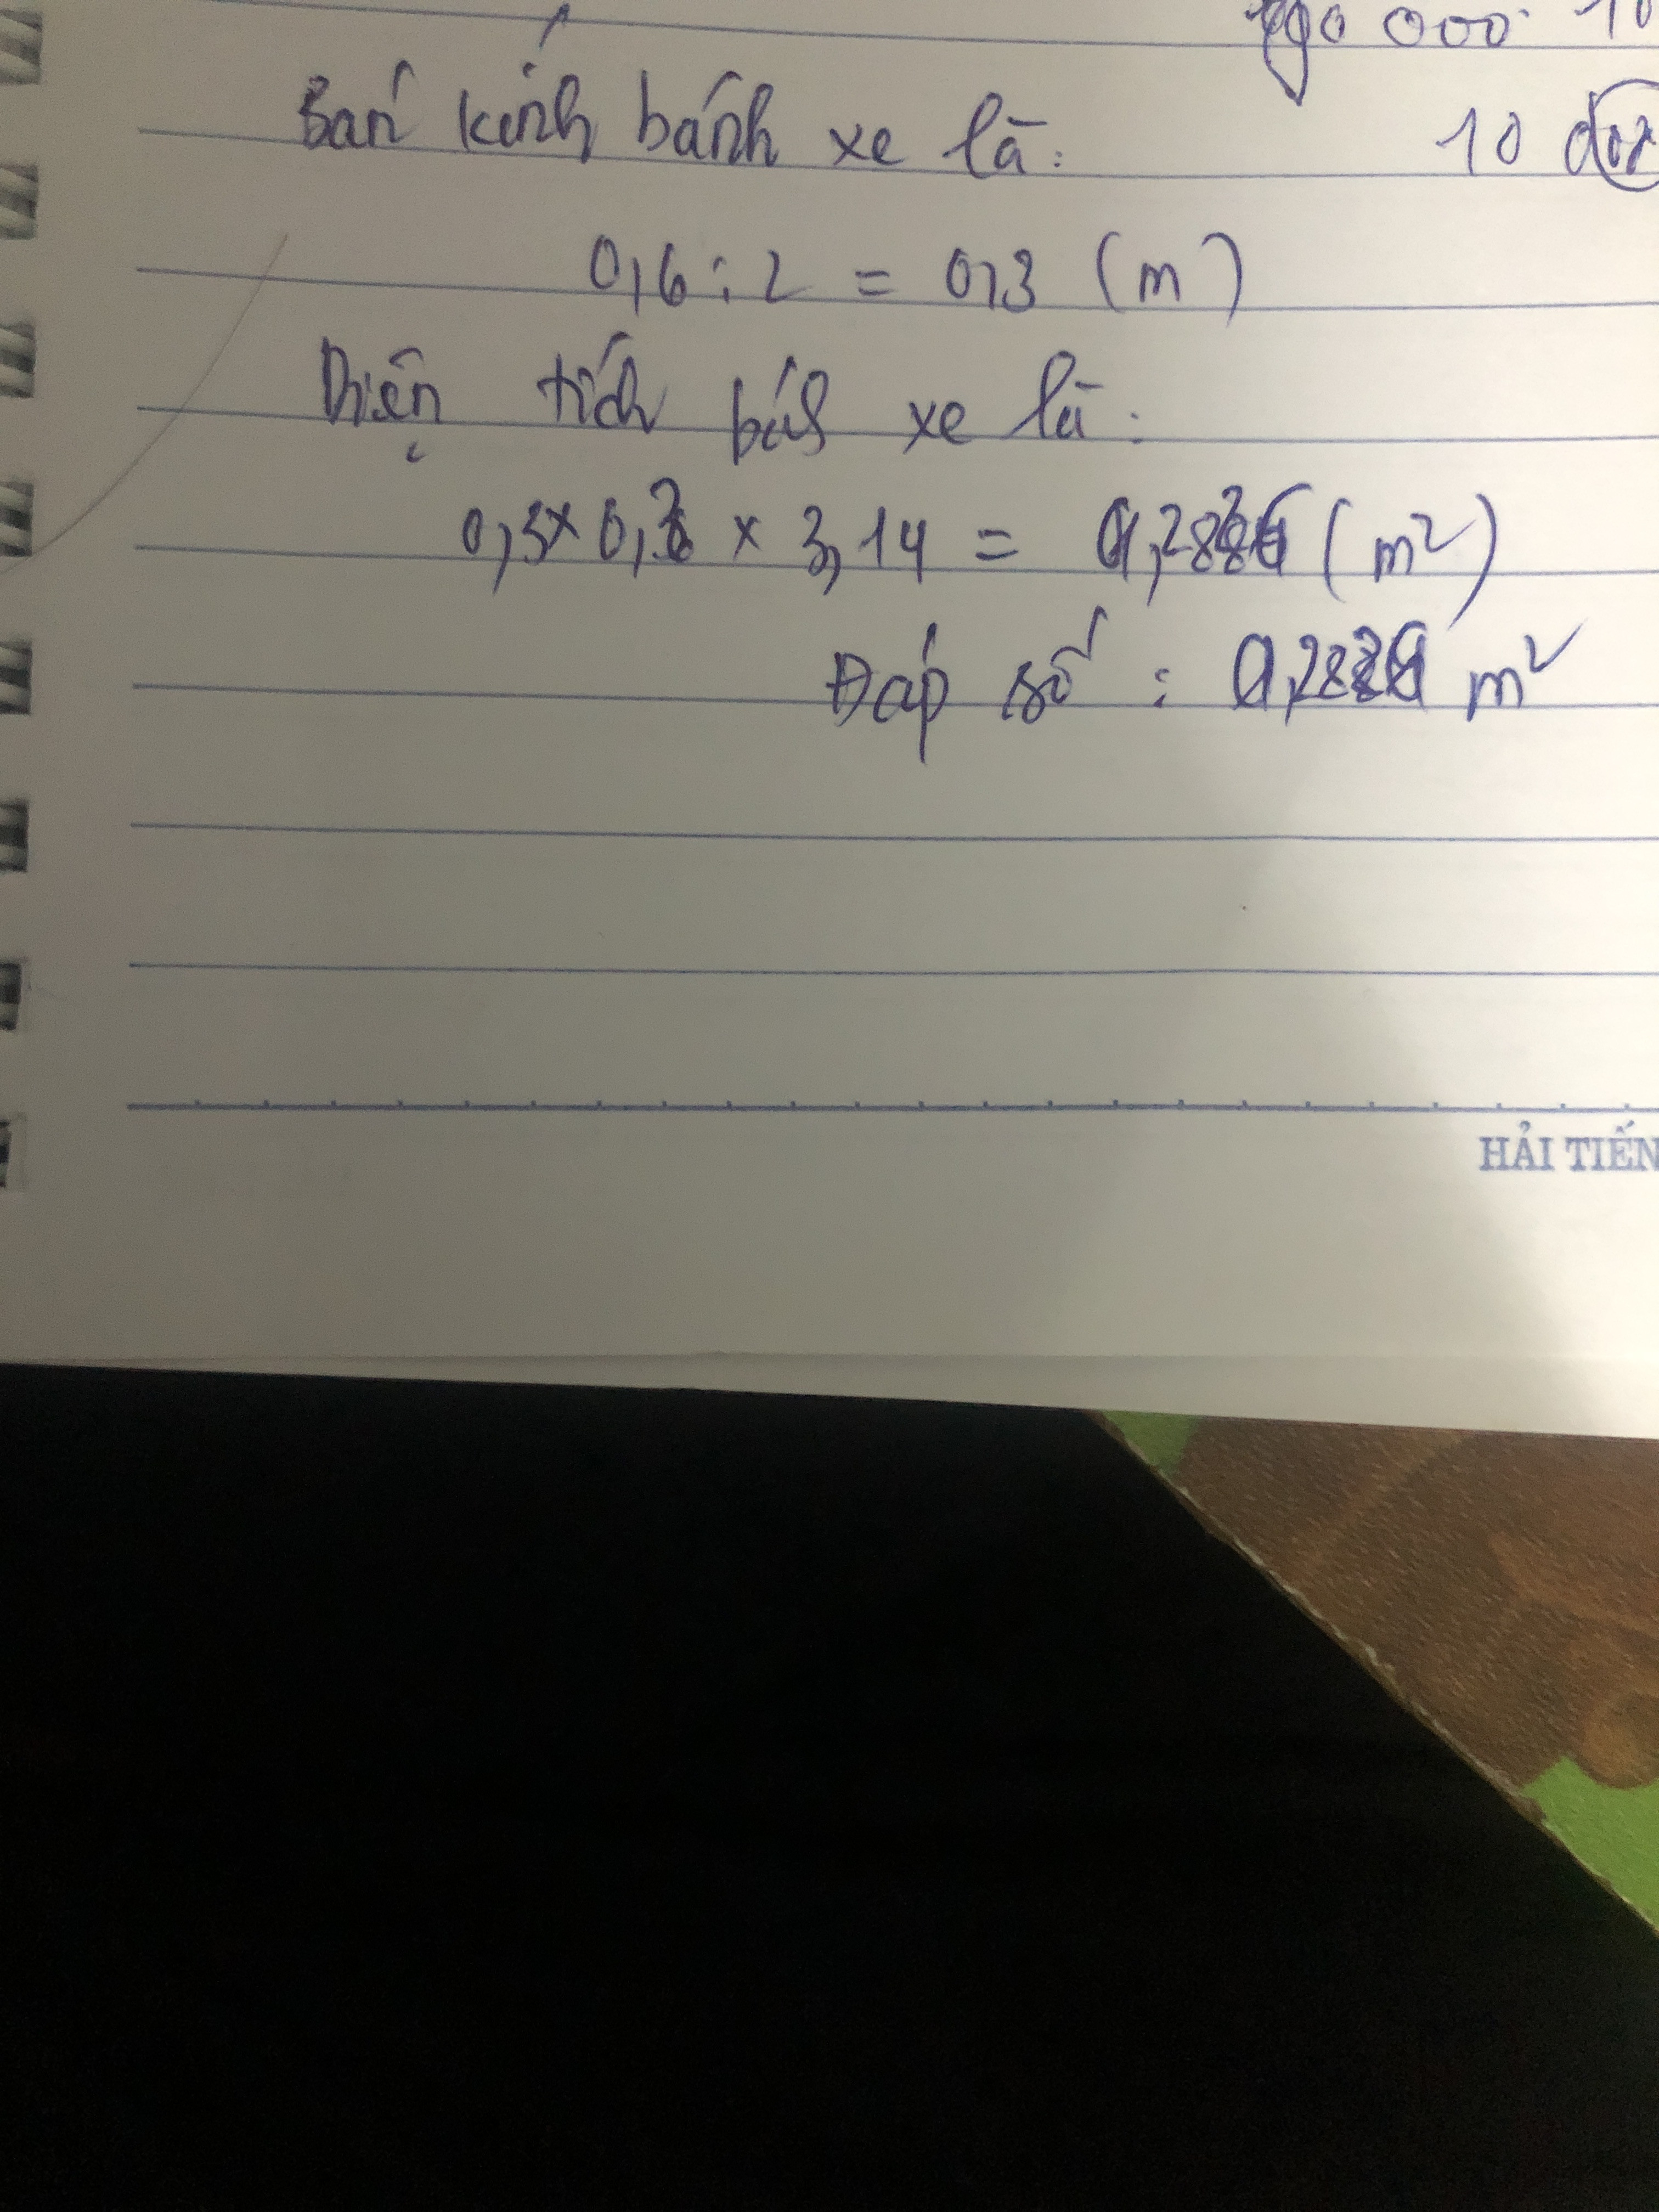 000 10
Bán kính bánh xe là:
10 
0,6 : 2 = 0,3 (m)
Diện tích bánh xe là:
0,3 x 0,3 x 3,14 = 0,2826 (m²)
Đáp số : 0,2826 m²
HẢI TIẾN